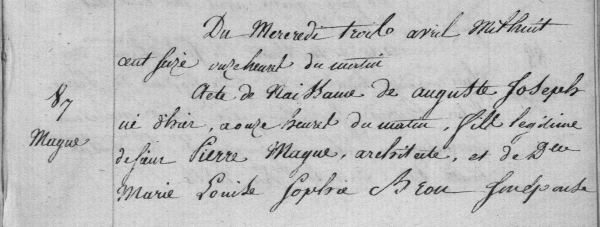 Du Mercredi trois avril Mil huit
cent seize onze heures du matin
Acte de Naissance de auguste Joseph
né d'hier, a onze heures du matin, fils legitime
87
Maque
de sieur Pierre Maque, architecte, et de Dlle
Marie Louise Sophie Beou son épouse